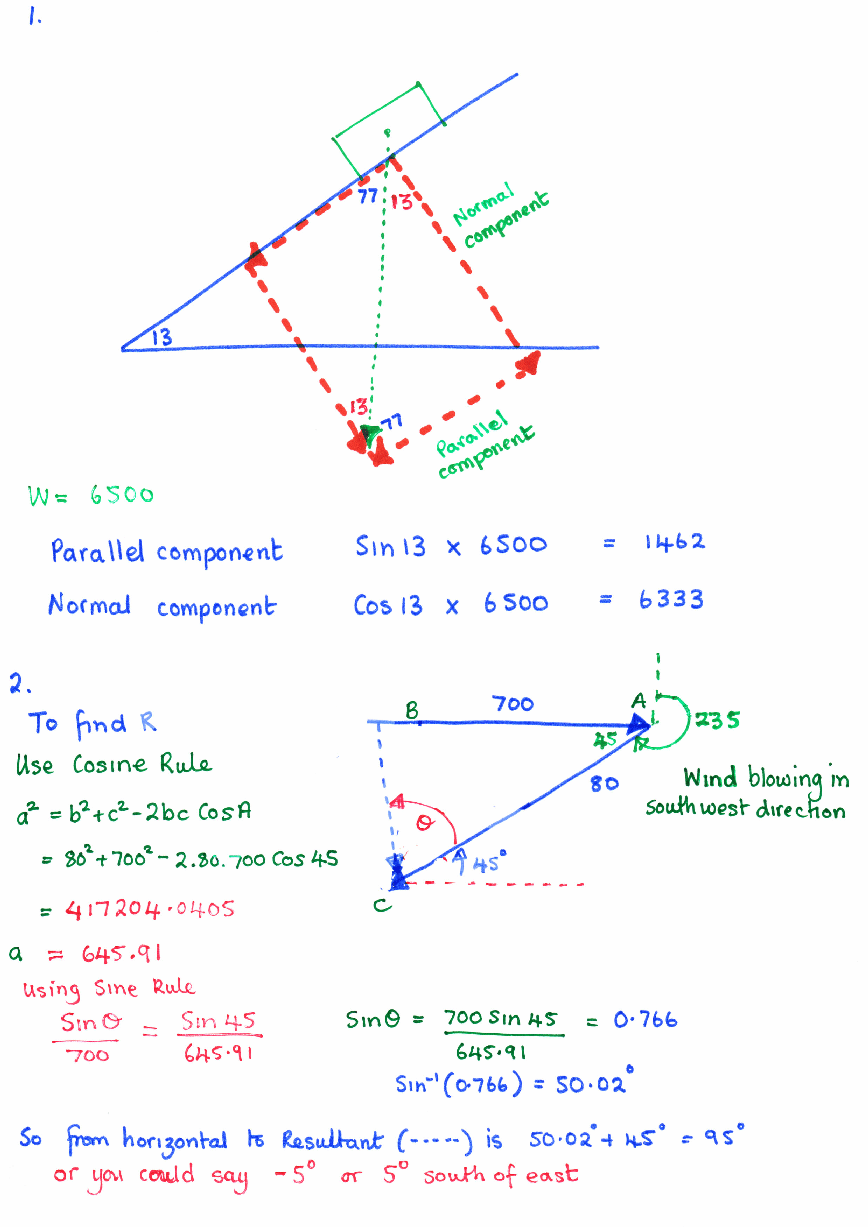 1.
77
13
Normal
component
13
13
77
Parallel
component
W = 6500
Parallel component Sin 13 x 6500 = 1462
Normal component Cos 13 x 6500 = 6333
2.
To find R
B 700 A
45
235
80
Wind blowing in
south west direction
θ
45°
C
Use Cosine Rule
a² = b²+c²-2bc CosA
= 80²+700²- 2.80.700 Cos 45
= 417204.0405
a = 645.91
Using Sine Rule
Sin θ / 700 = Sin 45 / 645.91
Sinθ = 700 Sin 45 / 645.91 = 0.766
Sin⁻¹(0.766) = 50.02°
So from horizontal to Resultant (-----) is 50.02°+ 45° = 95°
or you could say -5° or 5° south of east